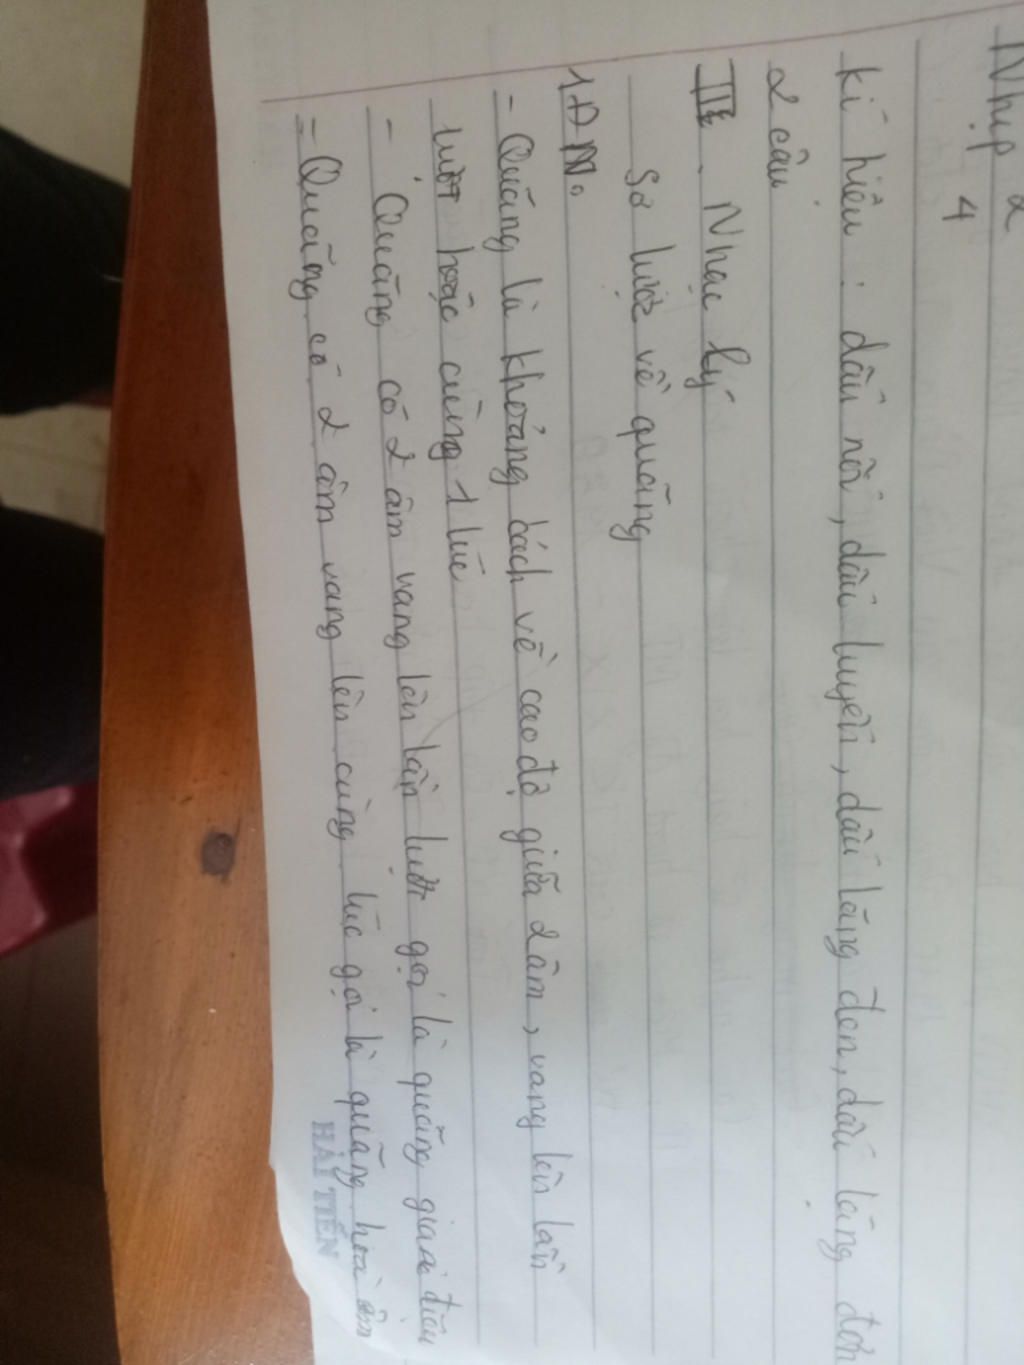 Nhịp 2
4
kí hiệu : dấu nối, dấu luyến, dấu lặng đen, dấu lặng đơn
2 câu
II. Nhạc lý
Sơ lược về quãng
1. ĐN.
- Quãng là khoảng cách về cao độ giữa 2 âm, vang lên lần
lượt hoặc cùng 1 lúc
- Quãng có 2 âm vang lên lần lượt gọi là quãng giai điệu
- Quãng có 2 âm vang lên cùng lúc gọi là quãng hoà âm
HẢI TIẾN